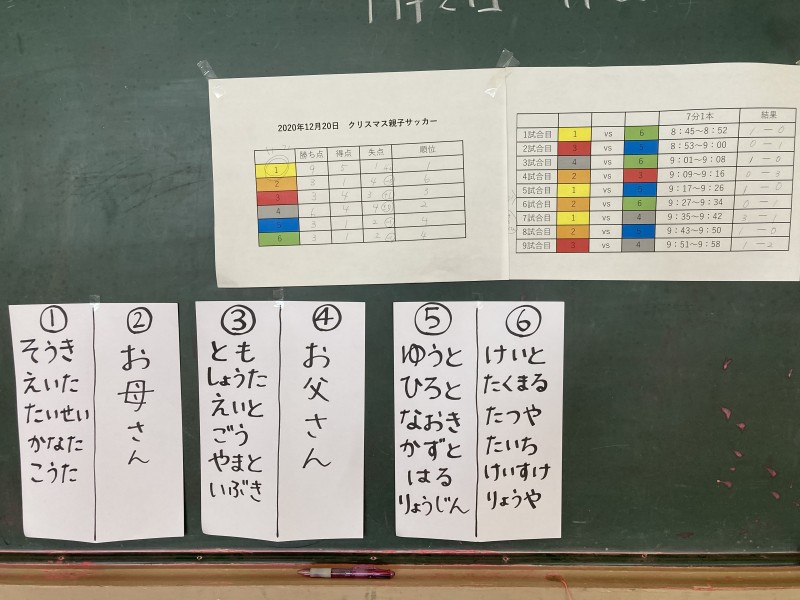 2020年12月20日 クリスマス親子サッカー
勝ち点 得点 失点 順位
1 9 5 1 1
2 3 1 4 6
3 3 4 3 3
4 6 4 4 2
5 3 1 2 4
6 3 1 2 4
7分1本 結果
1試合目 1 vs 6 8:45~8:52 1-0
2試合目 3 vs 5 8:53~9:00 0-1
3試合目 4 vs 6 9:01~9:08 1-0
4試合目 2 vs 3 9:09~9:16 0-3
5試合目 1 vs 5 9:17~9:26 1-0
6試合目 2 vs 6 9:27~9:34 0-1
7試合目 1 vs 4 9:35~9:42 3-1
8試合目 2 vs 5 9:43~9:50 1-0
9試合目 3 vs 4 9:51~9:58 1-2
①
そうき
えいた
たいせい
かなた
こうた
②
お母さん
③
とも
しょうた
えいと
ごう
やまと
いぶき
④
お父さん
⑤
ゆうと
ひろと
なおき
かずと
はる
りょうじん
⑥
けいと
たくまる
たつや
たいち
けいすけ
りょうや